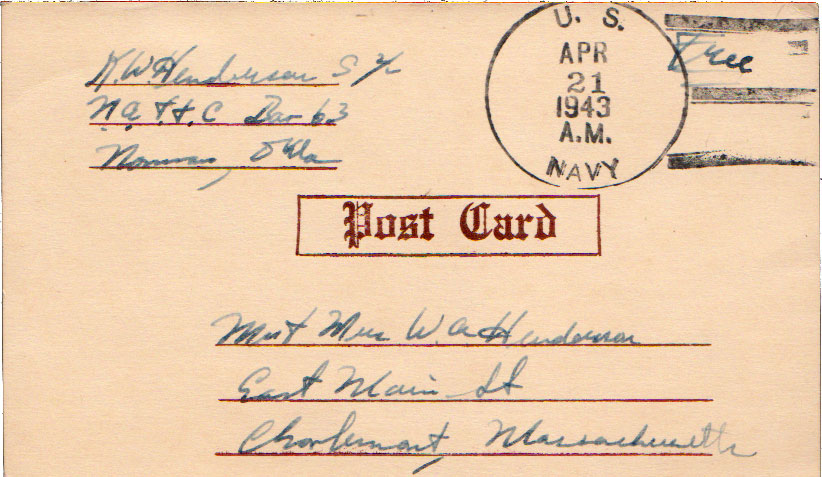 K.W. Henderson S 2/c
N.A.T.T.C Bar 63
Norman, Okla
U. S.
APR
21
1943
A.M.
NAVY
Free
Post Card
Mr & Mrs W.A. Henderson
East Main St
Charlemont, Massachusetts